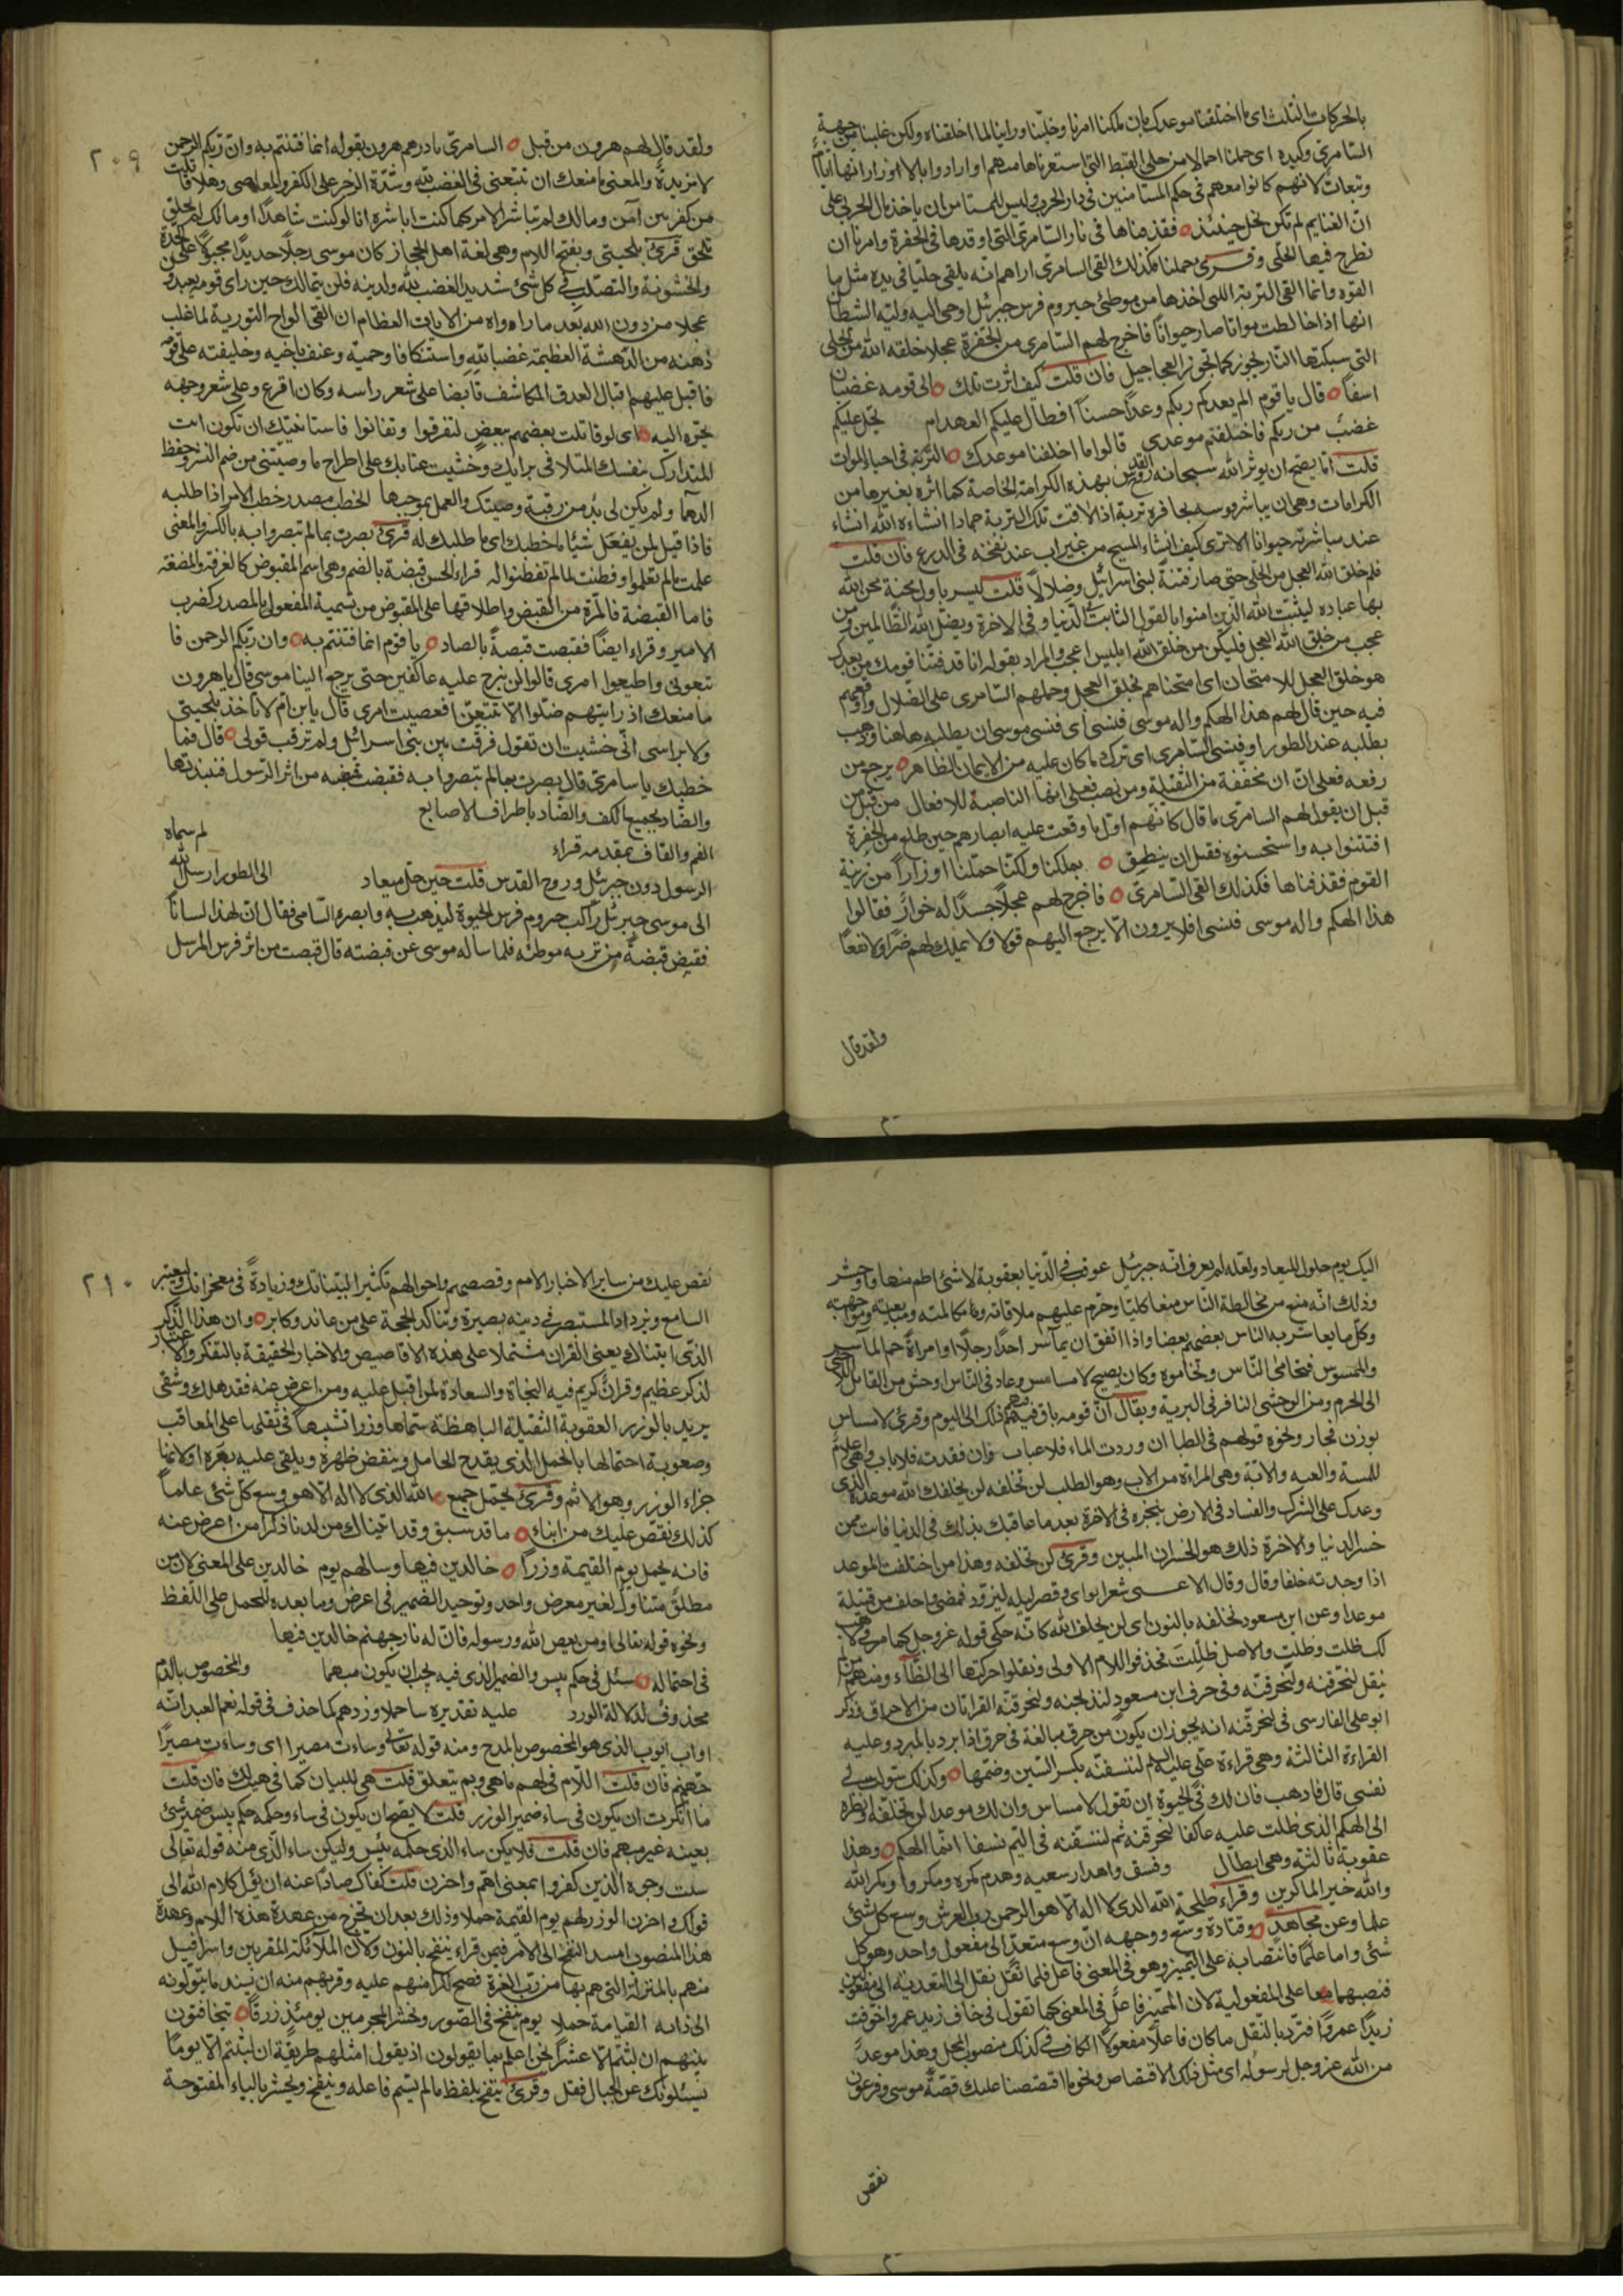 بالحركات الثلث اى ما اختلفنا موعدك بان ملكنا امرنا وخلينا وراينا لما اخلفناه ولكن غلبنا من جهة
السامرى وكيده اى حملنا احمالا من حلى القبط التى استعرناها منهم او ارادوا بالاوزار انها اثام
وتبعات لانهم كانوا معهم فى حكم المستامنين فى دار الحرب وليس للمستامن ان ياخذ مال الحربى على
ان الغنايم لم تكن تحل حينئذ فقذفناها فى نار السامرى التى اوقدها فى الحفرة وامرنا ان
نطرح فيها الحلى وقرئ حملنا فكذلك القى السامرى اراهم انه يلقى حليا فى يده مثل ما
القوه وانما القى التربة اللتى اخذها من موطئ حيزوم فرس جبرئيل اوحى اليه وليه الشيطان
انها اذا خالطت مواتا صار حيوانا فاخرج لهم السامرى من الحفرة عجلا خلقه الله من الحلى
التى سبكتها النار يخور كما تخور العجاجيل فان قلت كيف اثرت تلك الى قومه غضبان
اسفا قال يا قوم الم يعدكم ربكم وعدا حسنا افطال عليكم العهد ام يحل عليكم
غضب من ربكم فاختلفتم موعدى قالوا ما اخلفنا موعدك التربة فى احياء الموات
قلت اما يصح ان يوثر الله سبحانه روح القدس بهذه الكرامة الخاصة كما اثره بغيرها من
الكرامات وهى ان يباشر فرسه بحافره تربة اذا لاقت تلك التربة جمادا انشاءه الله انشاء
عند مباشرته حيوانا الا ترى كيف انشاء المسيح من غير اب عند نفخه فى الدرع فان قلت
فلم خلق الله العجل من الحلى حتى صار فتنة لبنى اسرائيل وضلالا قلت ليس باول محنة محن الله
بها عباده ليثبت الله الذين امنوا بالقول الثابت الدنيا وفى الاخرة ويضل الله الظالمين ومن
عجب من خلق الله العجل فليكن من خلق الله ابليس اعجب والمراد بقوله انا قد فتنا قومك من بعدك
هو خلق العجل للامتحان اى امتحناهم بخلق العجل وحملهم السامرى على الضلال واوقعهم
فيه حين قال لهم هذا الهكم واله موسى فنسى اى فنسى موسى ان يطلبه هاهنا وذهب
يطلبه عند الطور او فنسى السامرى اى ترك ما كان عليه من الايمان الظاهر يرجع من
رفعه فعلى ان ان مخففة من الثقيلة ومن نصب فعلى انها الناصبة للافعال من قبل من
قبل ان يقول لهم السامرى ما قال كانهم اول ما وقعت عليه ابصارهم حين طلع من الحفرة
افتتنوا به واستحسنوه فقبل ان ينطق بملكنا ولكنا حملنا اوزارا من زينة
القوم فقذفناها فكذلك القى السامرى فاخرج لهم عجلا جسدا له خوار فقالوا
هذا الهكم واله موسى فنسى افلا يرون الا يرجع اليهم قولا ولا يملك لهم ضرا ولا نفعا
ولقد قال
٢٠٩
ولقد قال لهم هرون من قبل السامرى بادرهم هرون بقوله انما فتنتم به وان ربكم الرحمن
لا مزيدة والمعنى ما منعك ان تتبعنى فى الغضب لله وشدة الزجر على الكفر والمعاصى وهلا قاتلت
من كفر بمن آمن ومالك لم تباشر الامر كما كنت اباشره انا لو كنت شاهدا او مالك لم تلحق
تلحق قرئ بلحيتى وبفتح اللام وهى لغة اهل الحجاز كان موسى رجلا حديدا مجبولا على الحدة
والخشونة والتصلب فى كل شئ شديد الغضب لله ولدينه فلن يتمالك حين راى قومه يعبدون
عجلا من دون الله بعد ما راوه من الايات العظام ان القى الواح التورية لما غلب
ذهنه من الدهشة العظيمة غضبا لله واستنكافا وحمية وعنف باخيه وخليفته على قومه
فاقبل عليهم اقبال العدو المكاشف قابضا على شعر راسه وكان اقرع وعلى شعر وجهه
يجره اليه اى لو قاتلت بعضهم ببعض لتفرقوا وتفانوا فاستانيتك ان تكون انت
المتدارك بنفسك المتلافى برايك وخشيت عتابك على اطراح ما وصيتنى من ضم النشر وحفظ
الدهماء ولم يكن لى بد من رقبة وصيتك والعمل بموجبها الخطب مصدر خطب الامر اذا طلبه
فاذا قيل لمن يفعل شيئا ما خطبك اى ما طلبك له قرئ بصرت بما لم تبصروا به بالكسر والمعنى
علمت ما لم تعلموا وفطنت لما لم تفطنوا له قراء الحسن قبضة بالضم وهى اسم المقبوض كالغرفة والمضغة
فاما القبضة فالمرة من القبض واطلاقها على المقبوض من تسمية المفعول بالمصدر كضرب
الامير وقراء ايضا فقبصت قبصة بالصاد يا قوم انما فتنتم به وان ربكم الرحمن فا
تبعونى واطيعوا امرى قالوا لن نبرح عليه عاكفين حتى يرجع الينا موسى قال يا هرون
ما منعك اذ رايتهم ضلوا الا تتبعن افعصيت امرى قال يا ابن ام لا تاخذ بلحيتى
ولا براسى انى خشيت ان تقول فرقت بين بنى اسرائيل ولم ترقب قولى قال فما
خطبك يا سامرى قال بصرت بما لم تبصروا به فقبضت قبضة من اثر الرسول فنبذتها
والضاد بجميع الكف والصاد باطراف الاصابع
الفم والقاف بمقدمه قراء لم سماه
الرسول دون جبرئيل وروح القدس قلت حين حل ميعاد الى الطور ارسل الله
الى موسى جبرئيل راكب حيزوم فرس الحيوة ليذهب به وابصره السامى فقال ان لهذا لسانا
فقبض قبضة من تربة موطئه فلما ساله موسى عن قبضته قال قبضت من اثر فرس المرسل
اليك يوم حلول الميعاد ولعله لم يعرف انه جبرئيل عوقب فى الدنيا بعقوبة لا شئ اطم منها واوحش
وذلك انه منع من مخالطة الناس منعا كليا وحرم عليهم ملاقاته ومكالمته ومبايعته ومواجهته
وكل ما يعاشر به الناس بعضهم بعضا واذا اتفق ان يماس احدا رجلا او امراة حم الماس
والممسوس فتحامى الناس وتحاموه وكان يصيح لا مساس وعاد فى الناس اوحش من القاتل اللاجئ
الى الحرم ومن الوحشى النافر فى البرية ويقال ان قومه باق فيهم ذلك الى اليوم وقرئ لا مساس
بوزن فجار ونحوه قولهم فى الظبا ان وردت الماء فلا عباب وان فقدته فلا اباب وهى اعلام
للمسة والعبه والابة وهى المراة من الاب وهو الطلب لن تخلفه لن يخلفك الله موعده الذى
وعدك على الشرك والفساد فى الارض ينجزه فى الاخرة بعد ما عاقبك بذلك فى الدنيا فانت ممن
خسر الدنيا والاخرة ذلك هو الخسران المبين وقرئ لن تخلفه وهذا من اختلفت الموعد
اذا وجدته خلفا وقال وقال الاعشى شعر اثوى وقصر ليله ليزود فمضى واخلف من قتيلة
موعدا وعن ابن مسعود نخلفه بالنون اى لن يخلف الله كانه حكى قوله عز وجل كما مر فى لاهب
لك ظلت وظلت والاصل ظللت فحذفوا اللام الاولى ونقلوا حركتها الى الظاء ومنهم من لم
ينقل لنحرقنه ولنحرقنه وفى حرف ابن مسعود لنذبحنه ولنحرقنه القراتان من الاحراق وذكر
ابو على الفارسى فى لنحرقنه انه يجوز ان يكون من حرق مبالغة فى حرق اذا برد بالمبرد وعليه
القراءة الثالثة وهى قراءة على عليه السلم لننسفنه بكسر السين وضمها وكذلك سولت لى
نفسى قال فاذهب فان لك فى الحيوة ان تقول لا مساس وان لك موعدا لن تخلفه وانظر
الى الهكم الذى ظلت عليه عاكفا لنحرقنه ثم لننسفنه فى اليم نسفا انما الهكم وهذا
عقوبة ثالثة وهى ابطال وفسق واهدار سعيه وهدم مكره ومكروا ومكر الله
والله خير الماكرين وقراء طلحة الله الذى لا اله الا هو الرحمن رب العرش وسع كل شئ
علما وعن مجاهد وقتادة وسع ووجهه ان وسع متعد الى مفعول واحد وهو كل
شئ واما علما فانتصابه على التمييز وهو فى المعنى فاعل فلما ثقل نقل الى التعدية الى مفعولين
فنصبهما معا على المفعولية لان المميز فاعل فى المعنى كما تقول فى خاف زيد عمرو اخوفت
زيدا عمروا فترد بالنقل ما كان فاعلا مفعولا الكاف فى كذلك منصوب المحل وهذا موعد
من الله عز وجل لرسوله اى مثل ذلك الاقتصاص ونحو ما اقتصصنا عليك قصة موسى وفرعون
نقص
٢١٠
نقص عليك من ساير الاخبار الامم وقصصهم واحوالهم تكثيرا لبيناتك وزيادة فى معجزاتك وليعتبر
السامع ويزداد المستبصر فى دينه بصيرة وتتاكد الحجة على من عاند وكابر وان هذا الذكر
الذى اتيناك يعنى القران مشتملا على هذه الاقاصيص والاخبار الحقيقة بالتفكر والاعتبار
لذكر عظيم وقران كريم فيه النجاة والسعادة لمن اقبل عليه ومن اعرض عنه فقد هلك وشقى
يريد بالوزر العقوبة الثقيلة الباهظة سماها وزرا تشبيها فى ثقلها على المعاقب
وصعوبة احتمالها بالحمل الذى يفدح الحامل وينقض ظهره ويلقى عليه بهره او لانها
جزاء الوزر وهو الاثم وقرئ يحتمل جمع الله الذى لا اله الا هو وسع كل شئ علما
كذلك نقص عليك من انباء ما قد سبق وقد اتيناك من لدنا ذكرا من اعرض عنه
فانه يحمل يوم القيمة وزرا خالدين فيها وسا لهم يوم خالدين على المعنى لان من
مطلق متناول لغير معرض واحد وتوحيد الضمير فى اعرض وما بعده للحمل على اللفظ
ونحوه قوله تعالى ومن يعص الله ورسوله فان له نار جهنم خالدين فيها
فى احتماله سئل فى حكم بيس والضمير الذى فيه يجب ان يكون مبهما والمخصوص بالذم
محذوف لدلالة الورد عليه تقديره ساء حملا وزرهم كما حذف فى قوله نعم العبد انه
اواب ايوب الذى هو المخصوص بالمدح ومنه قوله تعالى وساءت مصيرا اى وساءت مصيرا
جهنم فان قلت اللام فى لهم ما هى وبم يتعلق قلت هى للبيان كما فى هيت لك فان قلت
ما انكرت ان يكون فى ساء ضمير الوزر قلت لا يصح ان يكون فى ساء وحكمه حكم بيس ضمير شئ
بعينه غير مبهم فان قلت فلا يكن ساء الذى حكمه بئس وليكن ساء الذى منه قوله تعالى
سئت وجوه الذين كفروا بمعنى اهم واحزن قلت كفاك صادا عنه ان يؤل كلام الله الى
قولك واحزن الوزر لهم يوم القيمة حملا وذلك بعد ان تخرج من عهدة هذه اللام وعهدة
هذا المنصوب اسند النفخ الى الامر فيمن قراء ننفخ بالنون ولان الملائكة المقربين واسرافيل
منهم بالمنزلة التى هم بها من رب العزة فصح لكرامتهم عليه وقربهم منه ان يسند ما يتولونه
الى ذاته القيامة حملا يوم ينفخ فى الصور ونحشر المجرمين يومئذ زرقا يتخافتون
بينهم ان لبثتم الا عشرا نحن اعلم بما يقولون اذ يقول امثلهم طريقة ان لبثتم الا يوما
يسئلونك عن الجبال فقل وقرئ ينفخ بلفظ ما لم يسم فاعله وينفخ ويحشر بالياء المفتوحة